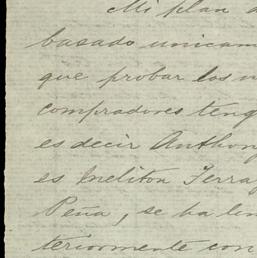 Mi plan
basado unicam
que probar los
compradores teng
es decir Anthon
es Meliton Ferra
Peña, se ha
teriormente con